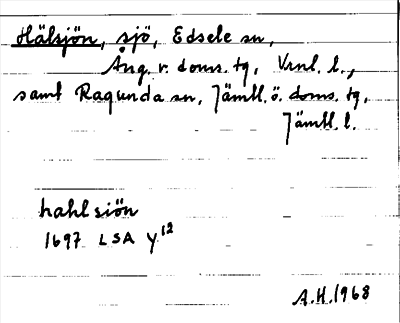 Hälsjön, sjö, Edsele sn,
Ång. v. doms. tg, Vrnl. l.,
samt Ragunda sn, Jämtl. ö. doms. tg,
Jämtl. l.
hahlsiön
1697 LSA Y12
A.H.1968